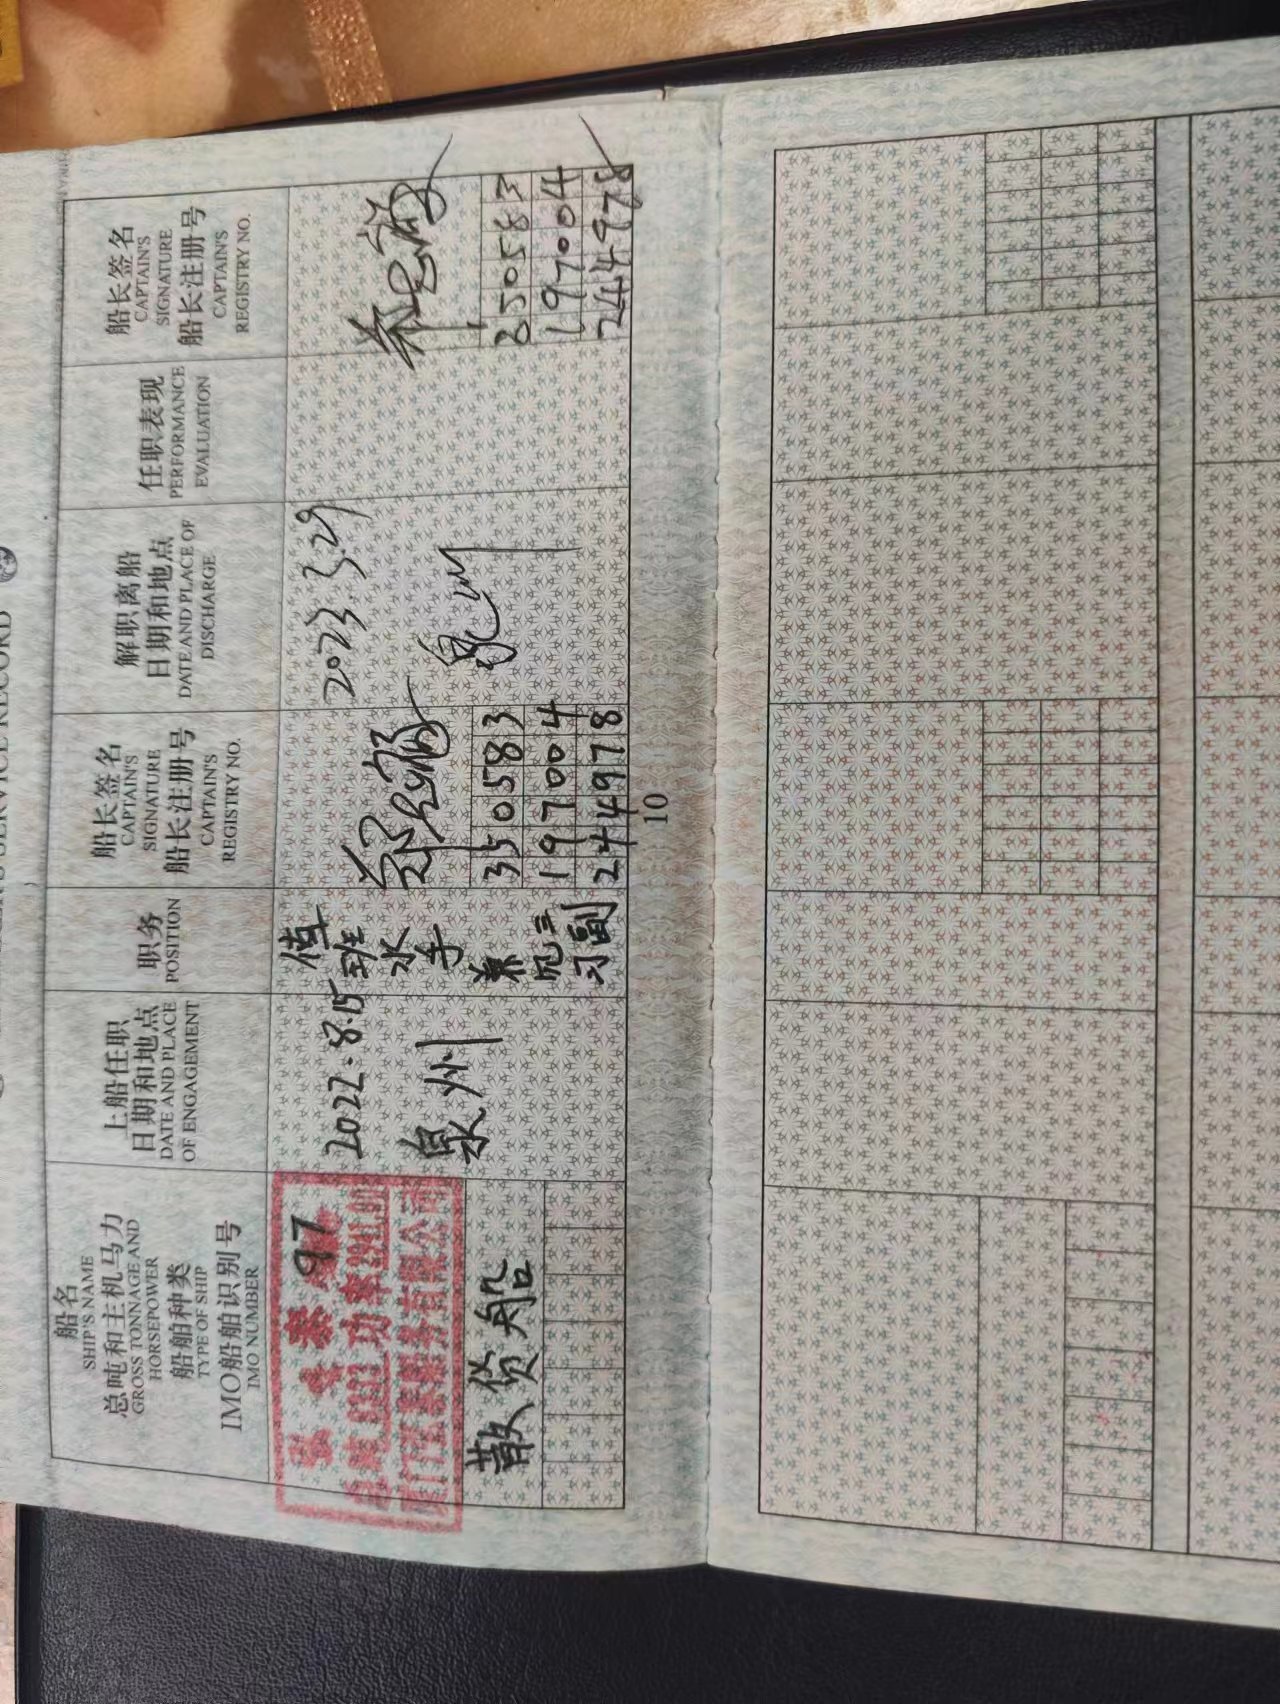 SERVICE RECORD
船名
SHIP'S NAME
总吨和主机马力
GROSS TONNAGE AND
HORSEPOWER
船舶种类
TYPE OF SHIP
IMO船舶识别号
IMO NUMBER
上船任职
日期和地点
DATE AND PLACE
OF ENGAGEMENT
职务
POSITION
船长签名
CAPTAIN'S
SIGNATURE
船长注册号
CAPTAIN'S
REGISTRY NO.
解职离船
日期和地点
DATE AND PLACE OF
DISCHARGE
任职表现
PERFORMANCE
EVALUATION
船长签名
CAPTAIN'S
SIGNATURE
船长注册号
CAPTAIN'S
REGISTRY NO.
泰 97
功率
有限公司
散货船
2022.8.15
泉州
值
班
水
手
兼
见三
习副
350583
197004
244978
2023.3.29
泉州
350583
197004
244978
10